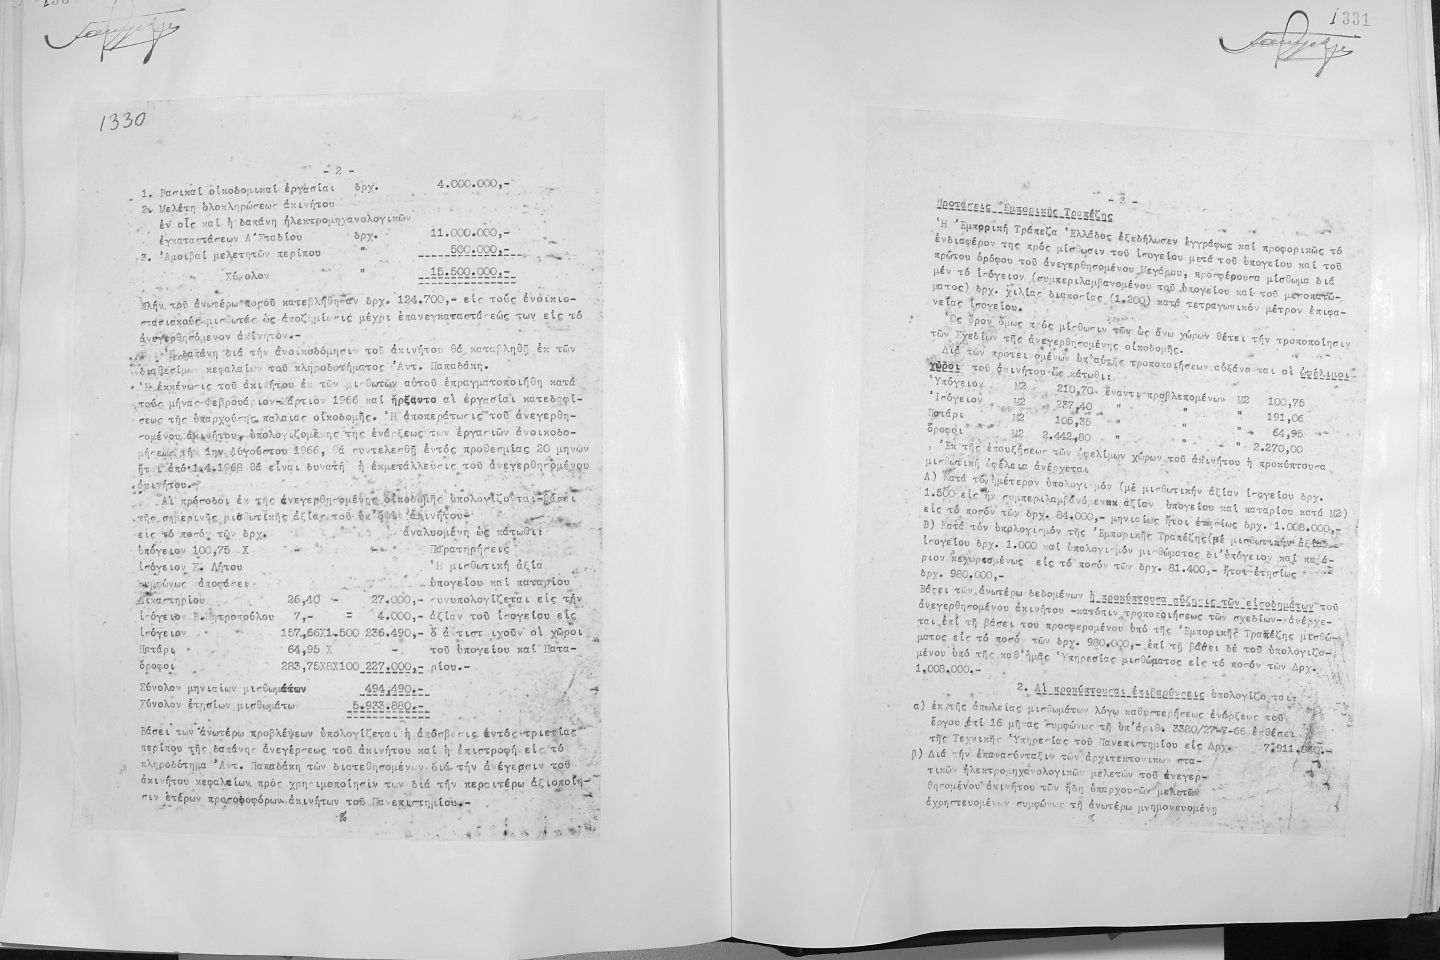 1331
1330
- 2 -
1. Βασικαί οἰκοδομικαί ἐργασίαι δρχ. 4.000.000,-
2. Μελέτη ὁλοκληρώσεως ἀκινήτου
ἐν οἷς καί ἡ δαπάνη ἠλεκτρομηχανολογικῶν
ἐγκαταστάσεων Α΄Σταδίου δρχ. 11.000.000,-
3. Ἀμοιβαί μελετητῶν περίπου " 500.000,-
Σύνολον " 15.500.000,-
Πλήν τοῦ ἀνωτέρω ποσοῦ κατεβλήθησαν δρχ. 124.700,- εἰς τούς ἐνοικιο-
στασιακούς μισθωτάς ὡς ἀποζημίωσις μέχρι ἐπανεγκαταστάσεώς των εἰς τό
ἀνεγερθησόμενον ἀκίνητον.-
Ἡ δαπάνη διά τήν ἀνοικοδόμησιν τοῦ ἀκινήτου θά καταβληθῇ ἐκ τῶν
διαθεσίμων κεφαλαίων τοῦ κληροδοτήματος Ἀντ. Παπαδάκη.
Ἡ ἐκκένωσις τοῦ ἀκινήτου ἐκ τῶν μισθωτῶν αὐτοῦ ἐπραγματοποιήθη κατά
τούς μῆνας Φεβρουάριον-Μάρτιον 1966 καί ἤρξαντο αἱ ἐργασίαι κατεδαφί-
σεως τῆς ὑπαρχούσης παλαιας οἰκοδομῆς. Ἡ ἀποπεράτωσις τοῦ ἀνεγερθη-
σομένου ἀκινήτου, ὑπολογιζομένης τῆς ἐνάρξεως των ἐργασιῶν ἀνοικοδο-
μήσεως τήν 1ην Αὐγούστου 1966, θά συντελεσθῇ ἐντός προθεσμίας 20 μηνῶν
ἤτοι ἀπό 1.4.1968 θά εἶναι δυνατή ἡ ἐκμετάλλευσις τοῦ ἀνεγερθησομένου
ἀκινήτου.-
Αἱ πρόσοδοι ἐκ τῆς ἀνεγερθησομένης οἰκοδομῆς ὑπολογίζονται βάσει
τῆς σημερινῆς μισθωτικῆς ἀξίας τοῦ ὑπ' ὄψιν ἀκινήτου-
εἰς τό ποσόν τῶν δρχ. ἀναλυομένη ὡς κάτωθι:
ὑπόγειον 100,75 Χ - - Παρατηρήσεις
ἰσόγειον Σ. Λήτου Ἡ μισθωτική ἀξία
συμφώνως ἀποφάσει ὑπογείου καί παταρίου
Δικαστηρίου 26,40 - 27.000,- συνυπολογίζεται εἰς τήν
ἰσόγειον Β. Μητροπούλου 7,- = 4.000,- ἀξίαν τοῦ ἰσογείου εἰς
ἰσόγειον 157,66Χ1.500 236.490,- ὅ ἀντιστοιχοῦν οἱ χῶροι
Πατάρι 64,95 Χ - τοῦ ὑπογείου καί Πατα-
ὄροφοι 283,75Χ8Χ100 227.000,- ρίου.-
Σύνολον μηνιαίων μισθωμάτων 494.490.-
Σύνολον ἐτησίων μισθωμάτων 5.933.880.-
Βάσει τῶν ἀνωτέρω προβλέψεων ὑπολογίζεται ἡ ἀπόσβεσις ἐντός τριετίας
περίπου τῆς δαπάνης ἀνεγέρσεως τοῦ ἀκινήτου καί ἡ ἐπιστροφή εἰς τό
κληροδότημα Ἀντ. Παπαδάκη τῶν διατεθησομένων διά τήν ἀνέγερσιν τοῦ
ἀκινήτου κεφαλείων πρός χρησιμοποίησιν των διά τήν περαιτέρω ἀξιοποίη-
σιν ἑτέρων προσοφόρων ἀκινήτων τοῦ Πανεπιστημίου.-
%
- 3 -
Προτάσεις Ἐμπορικῆς Τραπέζης
Ἡ Ἐμπορική Τράπεζα Ἑλλάδος ἐξεδήλωσεν ἐγγράφως καί προφορικῶς τό
ἐνδιαφέρον της πρός μίσθωσιν τοῦ ἰσογείου μετά τοῦ ὑπογείου καί τοῦ
πρώτου ὀρόφου τοῦ ἀνεγερθησομένου Μεγάρου, προσφέρουσα μίσθωμα διά
μέν τό ἰσόγειον (συμπεριλαμβανομένου τοῦ ὑπογείου καί τοῦ μεσοπατώ-
ματος) δρχ. χιλίας διακοσίας (1.200) κατά τετραγωνικόν μέτρον ἐπιφα-
νείας ἰσογείου.
Ὡς ὅρον ὅμως πρός μίσθωσιν τῶν ὡς ἄνω χώρων θέτει τήν τροποποίησιν
τῶν Σχεδίων τῆς ἀνεγερθησομένης οἰκοδομῆς.
Διά τῶν προτεινομένων ὑπ'αὐτῆς τροποποιήσεων αὐξάνονται οἱ ὠφέλιμοι
χῶροι τοῦ ἀκινήτου ὡς κάτωθι:
Ὑπόγειον Μ2 210,70 ἔναντι προβλεπομένων Μ2 100,75
Ἰσόγειον Μ2 237,40 " " " 191,06
Πατάρι Μ2 105,35 " " " 64,95
ὄροφοι Μ2 2.442,80 " " " 2.270,00
Ἐκ τῆς ἐπαυξήσεως τῶν ὠφελίμων χώρων τοῦ ἀκινήτου ἡ προκύπτουσα
μισθωτική ὠφέλεια ἀνέρχεται
Α) Κατά τόν ἡμέτερον ὑπολογισμόν (μέ μισθωτικήν ἀξίαν ἰσογείου δρχ.
1.500 εἰς ἥν συμπεριλαμβάνομεν ἀξίαν ὑπογείου καί παταρίου κατά Μ2)
εἰς τό ποσόν τῶν δρχ. 84.000,- μηνιαίως ἤτοι ἐτησίως δρχ. 1.008.000,-
Β) Κατά τόν ὑπολογισμόν τῆς Ἐμπορικῆς Τραπέζης (μέ μισθωτικήν ἀξίαν
ἰσογείου δρχ. 1.000 καί ὑπολογισμόν μισθώματος δι'ὑπόγειον καί πατά-
ριον κεχωρισμένως εἰς τό ποσόν τῶν δρχ. 81.400,- ἤτοι ἐτησίως
δρχ. 980.000,-
Βάσει τῶν ἀνωτέρω δεδομένων ἡ προκύπτουσα αὔξησις τῶν εἰσοδημάτων τοῦ
ἀνεγερθησομένου ἀκινήτου -κατόπιν τροποποιήσεως τῶν σχεδίων-ἀνέρχε-
ται ἐπί τῇ βάσει τοῦ προσφερομένου ὑπό τῆς Ἐμπορικῆς Τραπέζης μισθώ-
ματος εἰς τό ποσόν τῶν δρχ. 980.000,- ἐπί τῇ βάσει δέ τοῦ ὑπολογιζο-
μένου ὑπό τῆς καθ'ἡμᾶς Ὑπηρεσίας μισθώματος εἰς τό ποσόν τῶν Δρχ.
1.008.000.-
2. Αἱ προκύπτουσαι ἐπιβαρύνσεις ὑπολογίζονται:
α) ἐκ τῆς ἀπωλείας μισθωμάτων λόγω καθυστερήσεως ἐνάρξεως τοῦ
ἔργου ἐπί 16 μῆνας συμφώνως τῇ ὑπ'ἀριθ. 3380/27-7-66 ἐκθέσει
τῆς Τεχνικῆς Ὑπηρεσίας τοῦ Πανεπιστημίου εἰς Δρχ.
β) Διά τήν ἐπανασύνταξιν τῶν ἀρχιτεκτονικῶν στα-
τικῶν ἠλεκτρομηχανολογικῶν μελετῶν τοῦ ἀνεγερ-
θησομένου ἀκινήτου τῶν ἤδη ὑπαρχουσῶν μελετῶν
ἀχρηστευομένων συμφώνως τῇ ἀνωτέρω μνημονευομένῃ